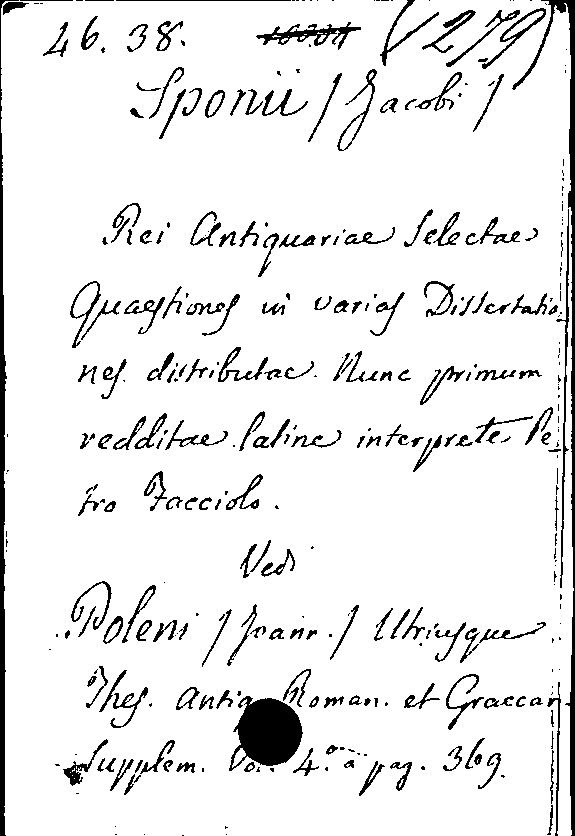 46. 38. (1279)
Sponii / Jacobi /
Rei Antiquariae Selectae
Quaestiones in varias Dissertatio-
nes distributae. Nunc primum
redditae latine interprete Pe-
tro Facciolo.
Vedi
Poleni / Joann. / Utriusque
Thes. Antiq. Roman. et Graecar.
Supplem. Vol. 4.º à pag. 369.